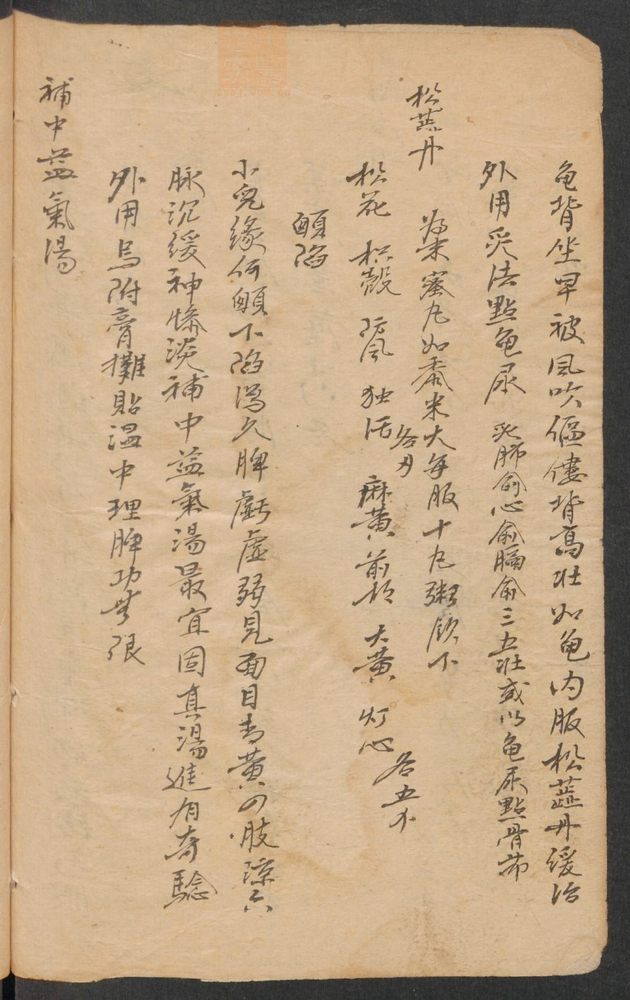 龟背坐早被風吹傴僂背高壮如龟内服松蕋丹缓治
外用灸法點龟尿 灸肺俞心俞膈俞三五壮或以龟尿點骨节
松蕋丹 為末蜜丸如黍米大每服十丸粥飲下
松花 枳殼 防風 独活 各刄 麻黄 前胡 大黄 灯心 各五卜
顖陷
小兒緣何顖下陷瀉久脾虧虚弱見面目青黄四肢凉六
脉沉緩神慘淡補中益氣湯最宜固真湯進有奇騐
外用烏附膏攤貼温中理脾功無限
補中益氣湯